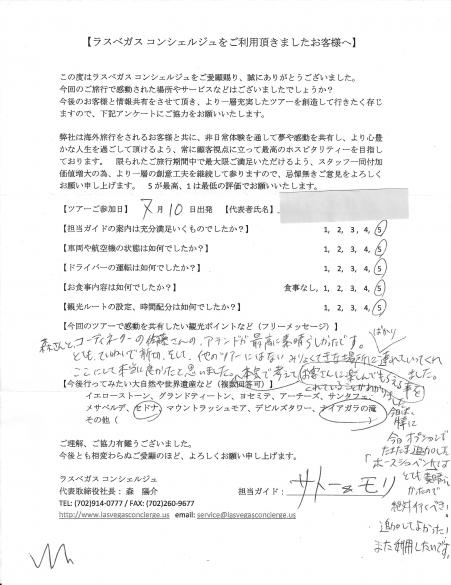 【ラスベガス コンシェルジュをご利用頂きましたお客様へ】
この度はラスベガス コンシェルジュをご愛顧賜り、誠にありがとうございました。
今回のご旅行で感動された場所やサービスなどはございましたでしょうか？
今後のお客様と情報共有をさせて頂き、より一層充実したツアーを創造して行きたく存じ
ますので、下記アンケートにご協力をお願いいたします。
弊社は海外旅行をされるお客様と共に、非日常体験を通して夢や感動を共有し、より心豊
かな人生を過ごして頂けるよう、常に顧客視点に立って最高のホスピタリティーを目指し
ております。 限られたご旅行期間中で最大限ご満足いただけるよう、スタッフ一同付加
価値増大の為、より一層の創意工夫を継続して参りますので、忌憚無きご意見をよろしく
お願い申し上げます。 5が最高、1は最低の評価でお願いいたします。
【ツアーご参加日】 7月10日出発 【代表者氏名】
【担当ガイドの案内は充分満足いくものでしたか？】 1, 2, 3, 4, 5
【車両や航空機の状態は如何でしたか？】 1, 2, 3, 4, 5
【ドライバーの運転は如何でしたか？】 1, 2, 3, 4, 5
【お食事内容は如何でしたか？】 食事なし, 1, 2, 3, 4, 5
【観光ルートの設定、時間配分は如何でしたか？】 1, 2, 3, 4, 5
【今回のツアーで感動を共有したい観光ポイントなど（フリーメッセージ）】
森さんとコーディネーターの佐藤さんの、アテンドが最高に素晴らしかったです。
とても、ていねいで親切、そして、他のツアーにはない みりょくてきな場所にばかり連れていってくれ
ここにして本当に良かったと思いました。本気で考えてお客さんに楽しんでもらえる事を
されていることがわかりました。
【今後行ってみたい大自然や世界遺産など（複数回答可）】
イエローストーン、グランドティートン、ヨセミテ、アーチーズ、サンタフェ、
メサベルデ、セドナ、マウントラッシュモア、デビルズタワー、ナイアガラの滝
その他（
今回オプションで
たまたま追加した
「ホースシューベンド」は
とても素晴らし
かったので
絶対行くべき！
追加してよかった！
また利用したいです。
ご理解、ご協力有難うございました。
今後とも相変わらぬご愛顧のほど、よろしくお願い申し上げます。
ラスベガス コンシェルジュ
代表取締役社長： 森 陽介 担当ガイド： サトー＆モリ
TEL: (702)914-0777 / FAX: (702)260-9677
http://www.lasvegasconcierge.us email: service@lasvegasconcierge.us